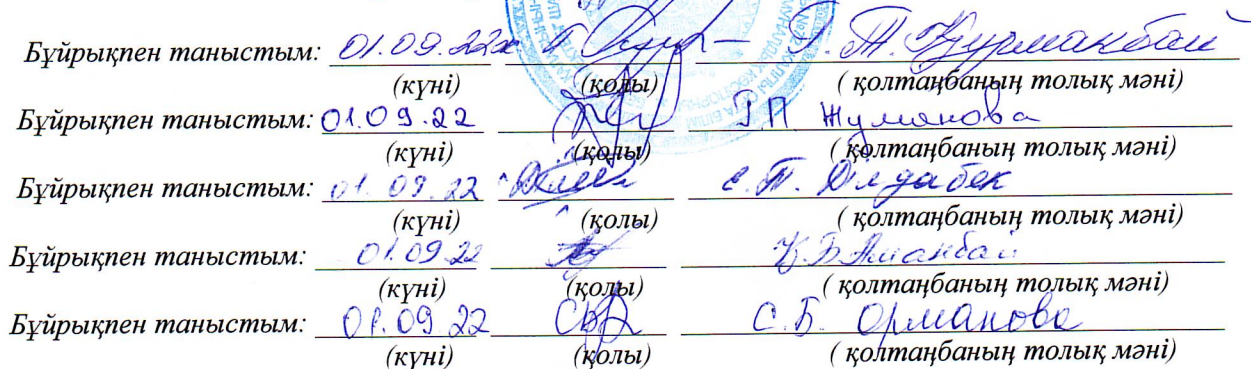 Бұйрықпен таныстым: 01.09.22ж Г.Т. Құрманбай
(күні) (қолы) ( қолтаңбаның толық мәні)
Бұйрықпен таныстым: 01.09.22 Г.П Жуманова
(күні) (қолы) ( қолтаңбаның толық мәні)
Бұйрықпен таныстым: 01.09.22 С.Т. Ділдабек
(күні) (қолы) ( қолтаңбаның толық мәні)
Бұйрықпен таныстым: 01.09.22 Қ.Б Аманбай
(күні) (қолы) ( қолтаңбаның толық мәні)
Бұйрықпен таныстым: 01.09.22 С.Б. Орманова
(күні) (қолы) ( қолтаңбаның толық мәні)